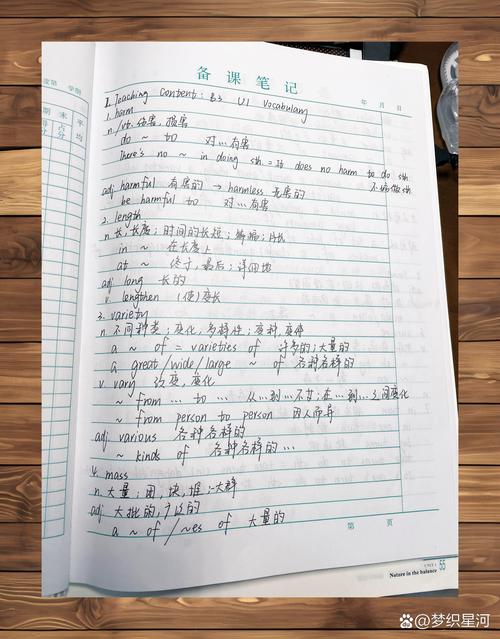 备课笔记
年 月 日
I. Teaching Content: B3 U1 Vocabulary
1. harm
n./vt. 伤害, 损害
do ~ to 对…有害
There's no ~ in doing sth = It does no harm to do sth
不妨做sth
adj harmful 有害的 → harmless 无害的
be harmful to 对…有害
2. length
n. 长; 长度; 时间的长短; 篇幅; 片长
in ~ 在长度上
at ~ 终于, 最后; 详细地
adj long 长的
v. lengthen (使)变长
3. variety
n. 不同种类; 变化, 多样性; 变种
a ~ of = varieties of 许多的; 大量的
a great/wide/large ~ of 各种各样的
v. vary 改变, 变化
~ from … to … 从…到…不等; 在…到…之间变化
~ from person to person 因人而异
adj various 各种各样的
~ kinds of 各种各样的…
4. mass
n. 大量; 团, 块, 堆; 大群
adj 大批的, 广泛的
a ~ of / ~es of 大量的
第 页
度第 学期
期 末 平
UNIT 1
Nature in the balance 55
百家号/梦织星河